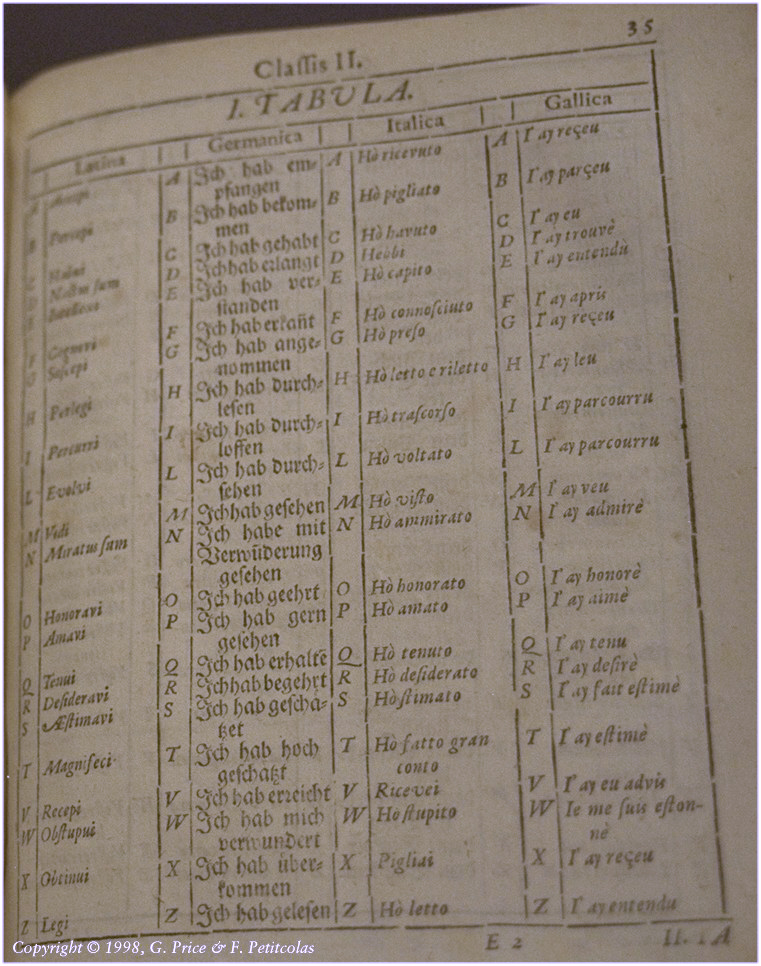 35
Claſſis II.
I. TABULA.
Latina | Germanica | Italica | Gallica
A Accepi | A Ich hab em⸗ | A Hò ricevuto | A I'ay reçeu
pfangen
B Percepi | B Ich hab bekom⸗ | B Hò pigliato | B I'ay parçeu
men
C Habui | C Ich hab gehabt | C Hò havuto | C I'ay eu
D Nactus ſum | D Ich hab erlangt | D Hebbi | D I'ay trouvè
E | E Ich hab ver⸗ | E Hò capito | E I'ay entendù
ſtanden
F Cognovi | F Ich hab erkañt | F Hò connoſciuto | F I'ay apris
G Suſcepi | G Ich hab ange⸗ | G Hò preſo | G I'ay reçeu
nommen
H Perlegi | H Ich hab durch⸗ | H Hò letto e riletto | H I'ay leu
leſen
I Percurri | I Ich hab durch⸗ | I Hò traſcorſo | I I'ay parcourru
loffen
L Evolvi | L Ich hab durch⸗ | L Hò voltato | L I'ay parcourru
ſehen
M Vidi | M Ich hab geſehen | M Hò viſto | M I'ay veu
N Miratus ſum | N Ich habe mit | N Hò ammirato | N I'ay admirè
Verwũderung
geſehen
O Honoravi | O Ich hab geehrt | O Hò honorato | O I'ay honorè
P Amavi | P Ich hab gern | P Hò amato | P I'ay aimè
geſehen
Q Tenui | Q Ich hab erhaltẽ | Q Hò tenuto | Q I'ay tenu
R Deſideravi | R Ich hab begehrt | R Hò deſiderato | R I'ay deſirè
S Æſtimavi | S Ich hab geſcha⸗ | S Hò ſtimato | S I'ay fait eſtimè
tzet
T Magnifeci | T Ich hab hoch | T Hò fatto gran | T I'ay eſtimè
geſchatzt | conto
V Recepi | V Ich hab erreicht | V Ricevei | V I'ay eu advis
W Obſtupui | W Ich hab mich | W Hò ſtupito | W Ie me ſuis eſton-
verwundert | nè
X Obtinui | X Ich hab über⸗ | X Pigliai | X I'ay reçeu
kommen
Z Legi | Z Ich hab geleſen | Z Hò letto | Z I'ay entendu
E 2 II. TA
Copyright © 1998, G. Price & F. Petitcolas